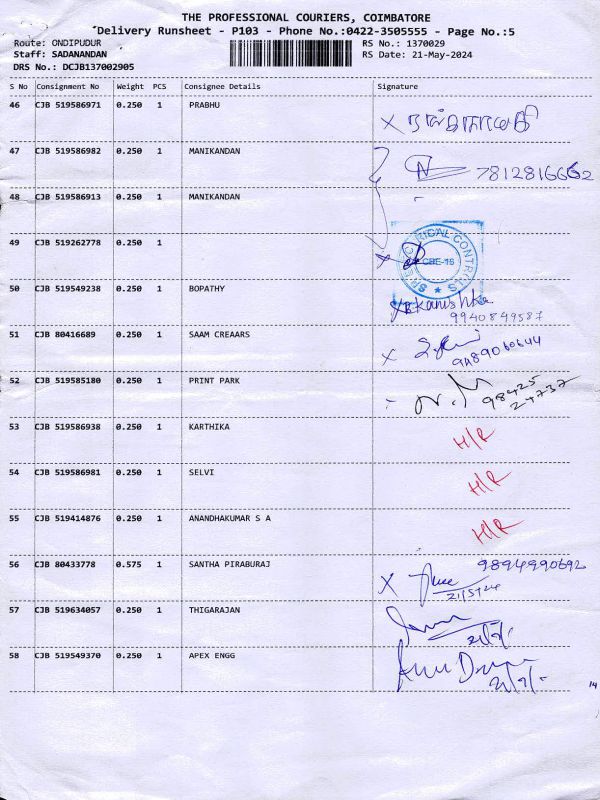 THE PROFESSIONAL COURIERS, COIMBATORE
Delivery Runsheet - P103 - Phone No.:0422-3505555 - Page No.:5
Route: ONDIPUDUR
Staff: SADANANDAN
DRS No.: DCJB137002905
RS No.: 1370029
RS Date: 21-May-2024
S No Consignment No Weight PCS Consignee Details Signature
46 CJB 519586971 0.250 1 PRABHU
47 CJB 519586982 0.250 1 MANIKANDAN 7812816662
48 CJB 519586913 0.250 1 MANIKANDAN
49 CJB 519262778 0.250 1
ELECTRICAL CONTROLS
CBE-16
50 CJB 519549238 0.250 1 BOPATHY Kanishka
9940849587
51 CJB 80416689 0.250 1 SAAM CREAARS
9489060644
52 CJB 519585180 0.250 1 PRINT PARK N.M 98425
24737
53 CJB 519586938 0.250 1 KARTHIKA H/R
54 CJB 519586981 0.250 1 SELVI H/R
55 CJB 519414876 0.250 1 ANANDHAKUMAR S A H/R
56 CJB 80433778 0.575 1 SANTHA PIRABURAJ 9894990692
21/5/24
57 CJB 519634057 0.250 1 THIGARAJAN
58 CJB 519549370 0.250 1 APEX ENGG
14